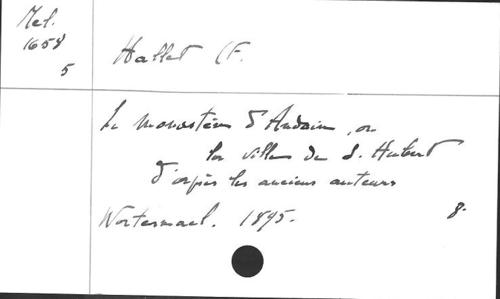 Mel.
1658
5
Hallet (F.
Le monastère d'Andain, ou
la ville de S. Hubert
d'après les anciens auteurs
Wortermael. 1895. 8.